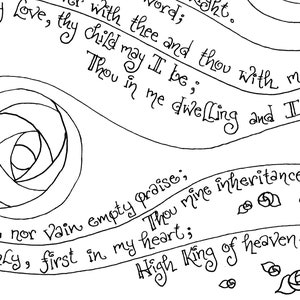 word;
ght.
er with thee and thou with m
Love, thy child may I be;
Thou in me dwelling and I
nor vain empty praise;
Thou mine inheritance
ly, first in my heart;
High King of heaven